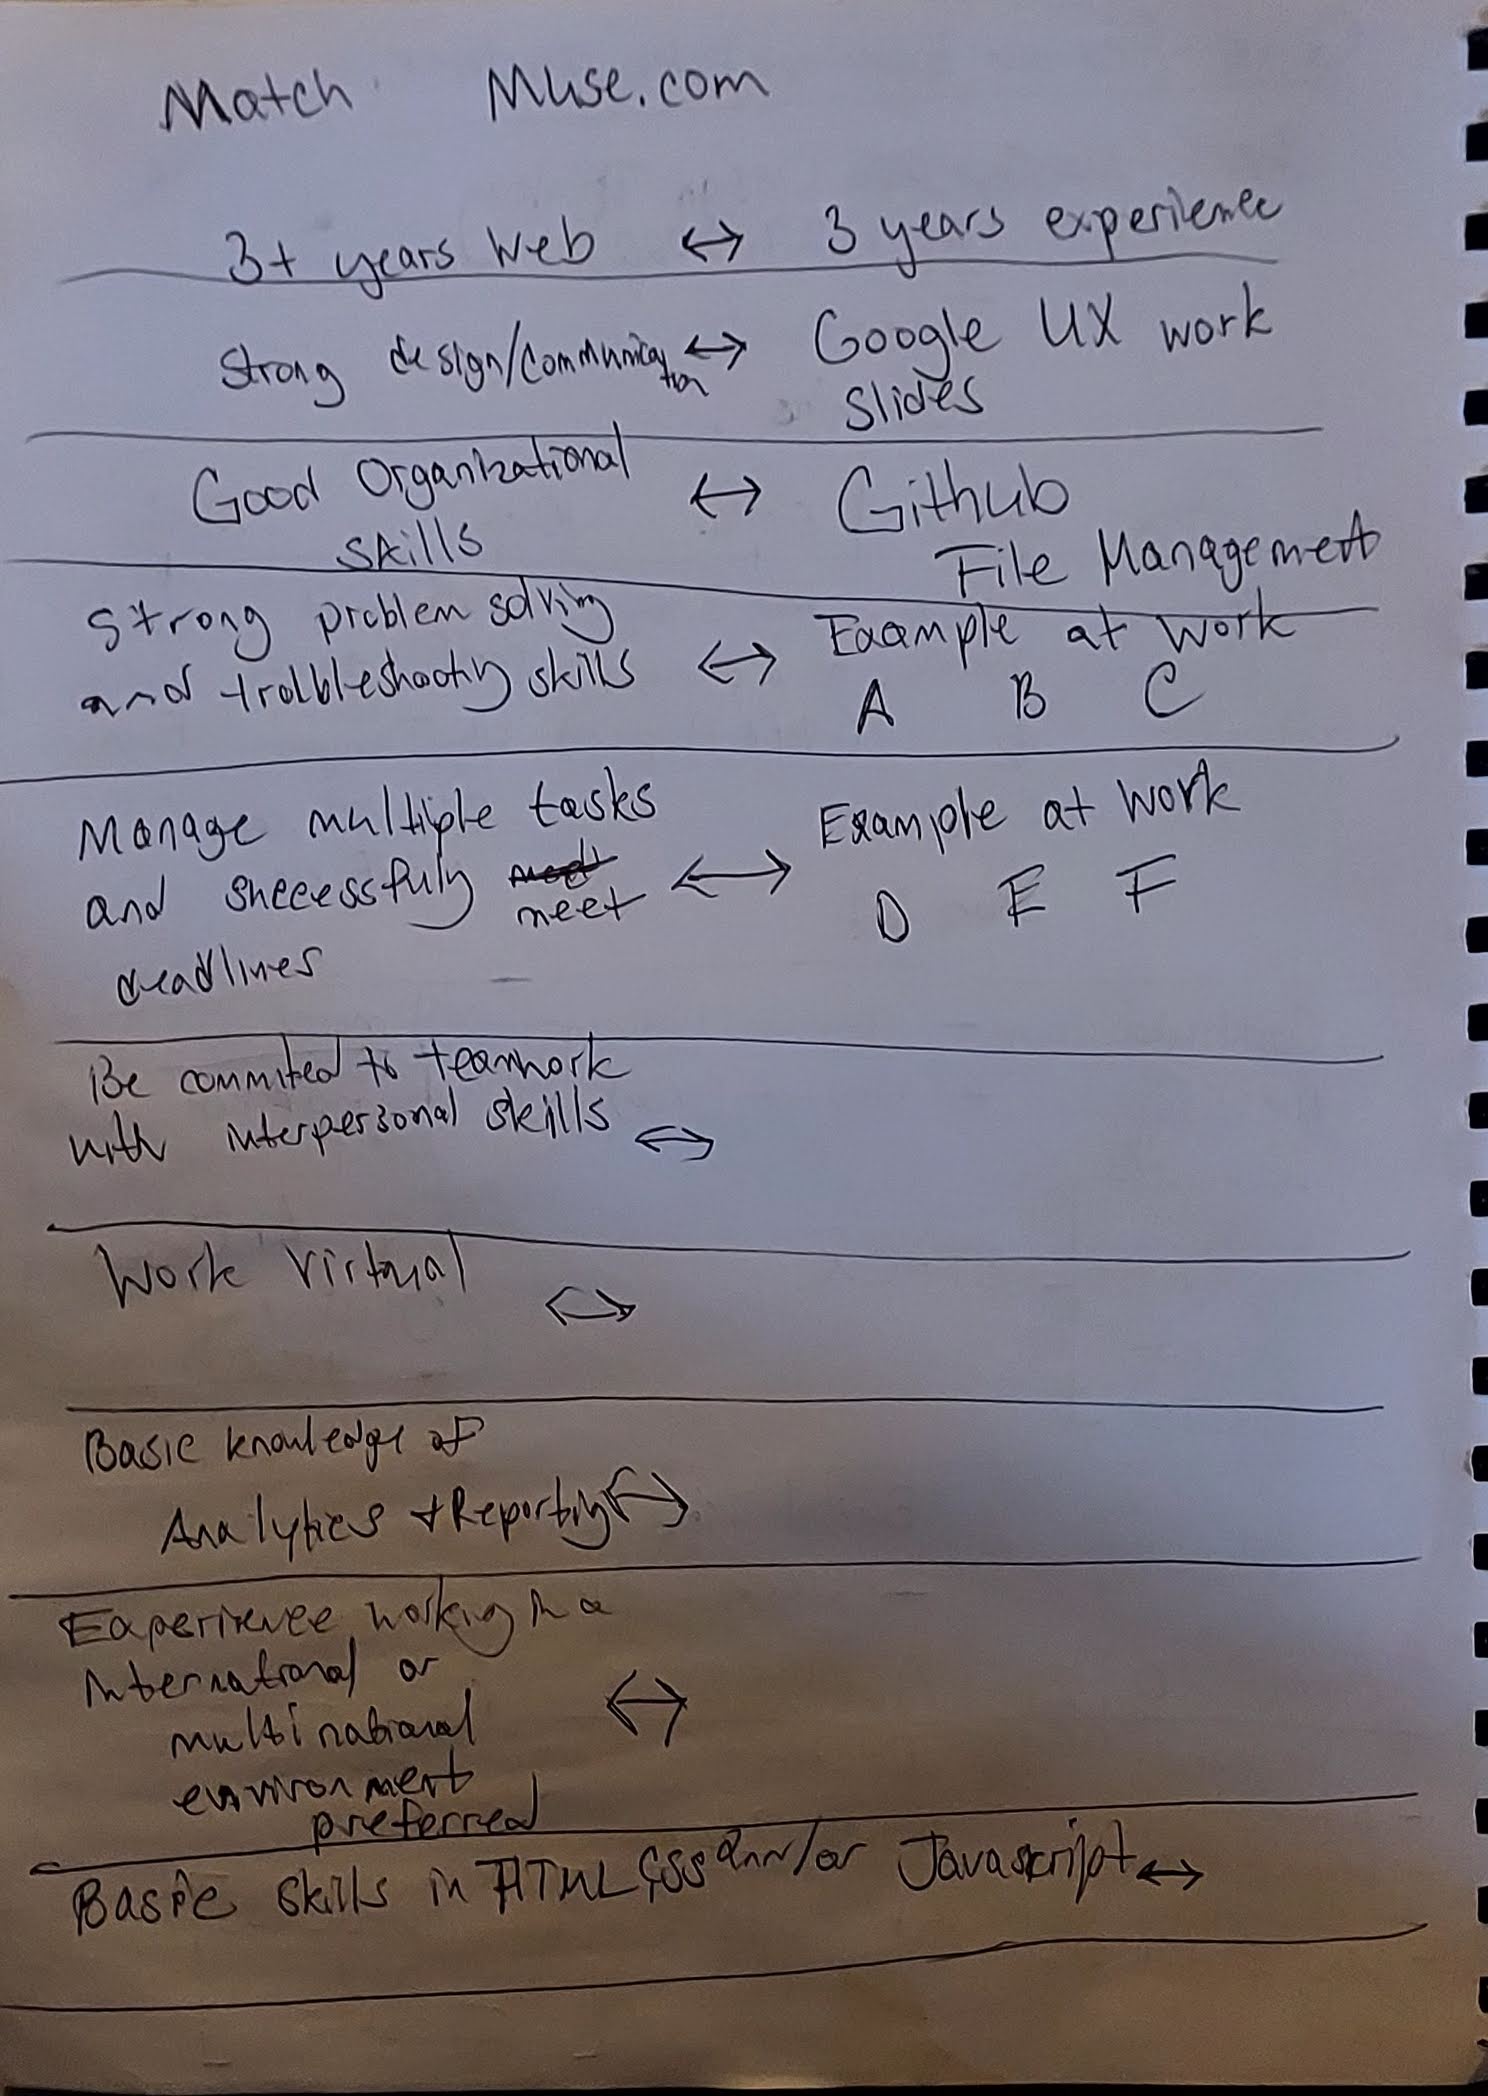 Match Muse.com
3+ years Web ↔ 3 years experience
Strong design/communication ↔ Google UX work
Slides
Good Organizational ↔ Github
skills File Management
Strong problem solving Example at work
and troubleshooting skills ↔ A B C
Manage multiple tasks Example at work
and successfully meet ↔ D E F
deadlines
Be commited to teamwork
with interpersonal skills ↔
Work Virtual ↔
Basic knowledge of
Analytics + Reporting ↔
Experience working in a
International or
multinational ↔
environment
preferred
Basic skills in HTML CSS and/or Javascript ↔